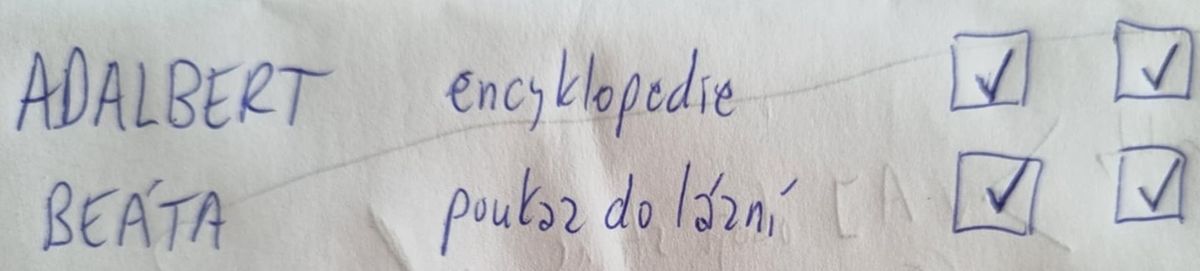 ADALBERT encyklopedie ☑ ☑
BEÁTA poukaz do lázní ☑ ☑